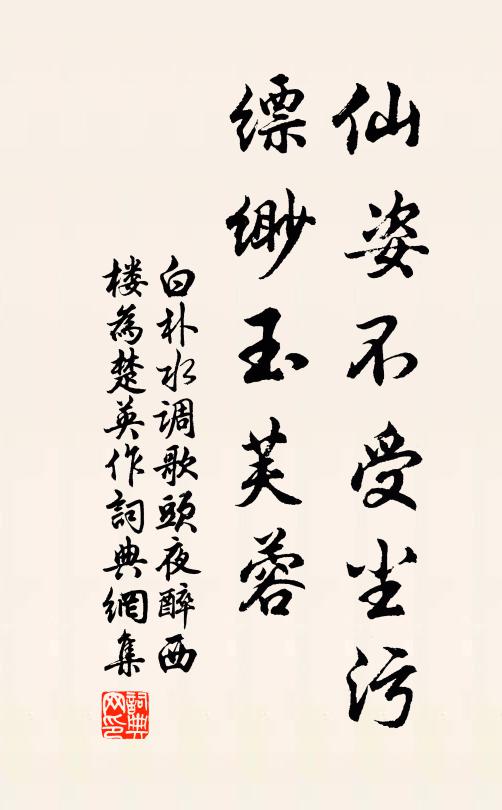 仙姿不受尘污
缥缈玉芙蓉
白朴水调歌頭夜醉西
楼為楚英作詞典網集
詞典网印